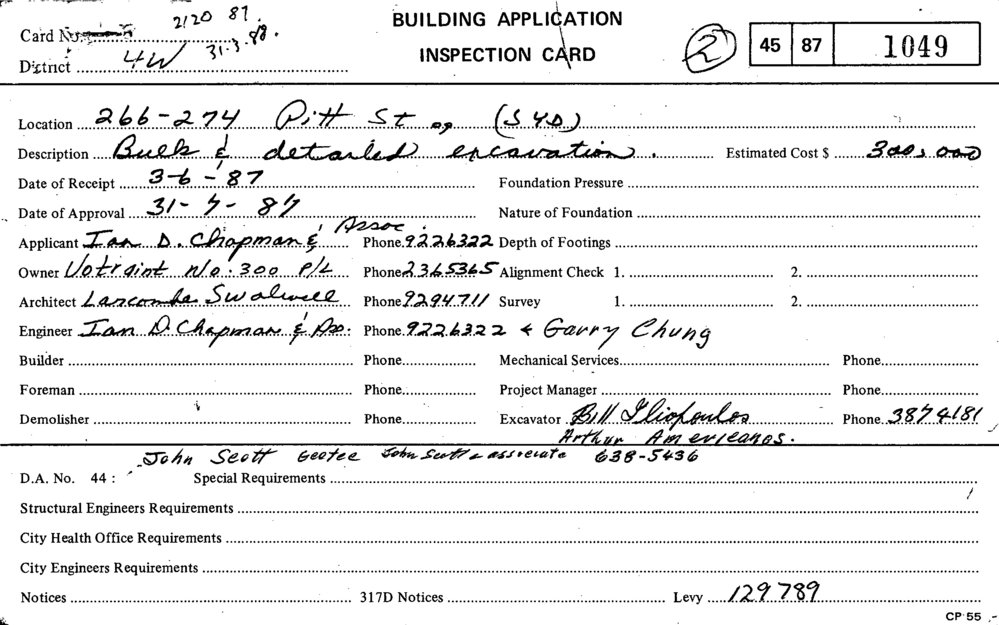 2120 87.
BUILDING APPLICATION
Card No.
31-3-88.
District 4W
INSPECTION CARD
2
45 87 1049
Location 266-274 Pitt St (SYD)
Description Bulk & detailed excavation. Estimated Cost $ 300,000
Date of Receipt 3-6-87 Foundation Pressure
Date of Approval 31-7-87 Nature of Foundation
Applicant Ian D. Chapman & Assoc. Phone 9226322 Depth of Footings
Owner Votraint No. 300 P/L Phone 2365365 Alignment Check 1. 2.
Architect Larcombe Swalwell Phone 9294711 Survey 1. 2.
Engineer Ian D. Chapman & Ass. Phone 9226322 & Garry Chung
Builder Phone Mechanical Services Phone
Foreman Phone Project Manager Phone
Demolisher Phone Excavator Bill Iliopoulos Phone 3874181
Arthur Americanos.
John Scott Geotec John Scott & associate 638-5436
D.A. No. 44 : Special Requirements
Structural Engineers Requirements
City Health Office Requirements
City Engineers Requirements
Notices 317D Notices Levy 129789
CP 55